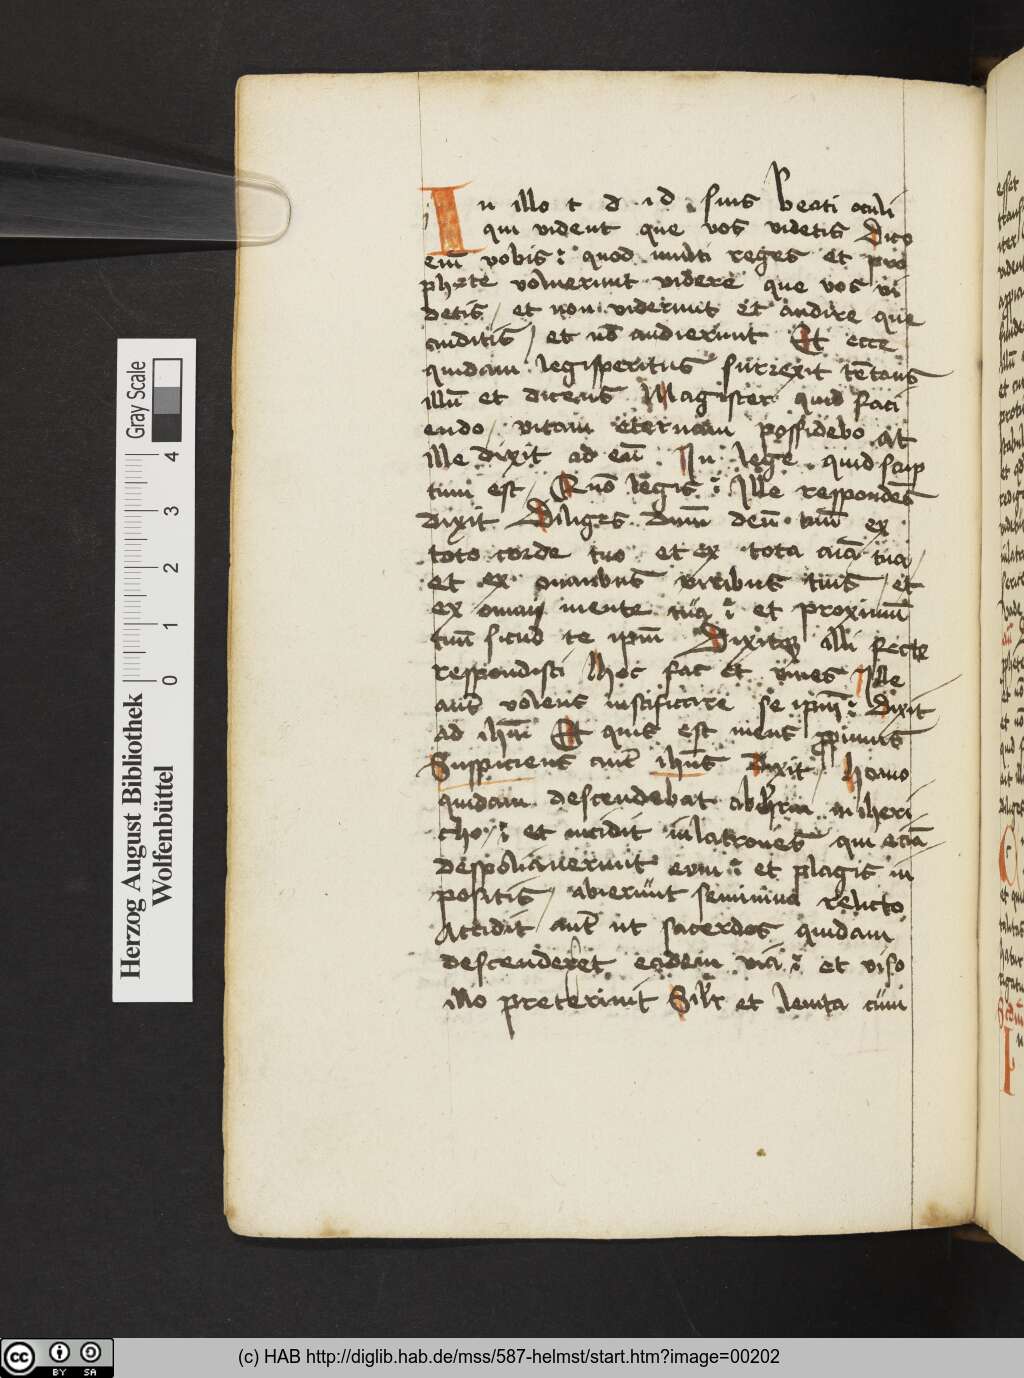 In illo t d i d suis Beati oculi
qui vident que vos videtis Dico
em̄ vobis quod multi reges et pro
phete voluerunt videre que vos vi
detis / et non viderunt et audire que
auditis / et nō audierunt Et ecce
quidam legisperitus surrexit tētans
illū et dicens Magister quid faci
endo / vitam eternam possidebo At
ille dixit ad eū In lege quid scrip
tum est / Quō legis Ille respondēs
dixit Diliges dnm̄ deū tuū ex
toto corde tuo et ex tota aīa tua /
et ex omnibus viribus tuis / et
ex omni mente tua et proximū
tuū sicud te ipm̄ Dixitq illi recte
respondisti hoc fac et vives Ille
aut̄ volens iustificare se ipm̄ Dixit
ad ihm̄ Et quis est meus ꝓximus
Suspiciens aut̄ ihūs Dixit homo
quidam descendebat ab ihrlm in iheri
cho / et incidit in latrones qui eciā
despoliaverunt eum et plagis in
positis / abierunt seminivo relicto
Accidit aut̄ ut sacerdos quidam
descenderet eadem via et viso
illo preterivit Silr et levita cum
Herzog August Bibliothek
Wolfenbüttel
Gray Scale
0 1 2 3 4
(c) HAB http://diglib.hab.de/mss/587-helmst/start.htm?image=00202
cc BY SA